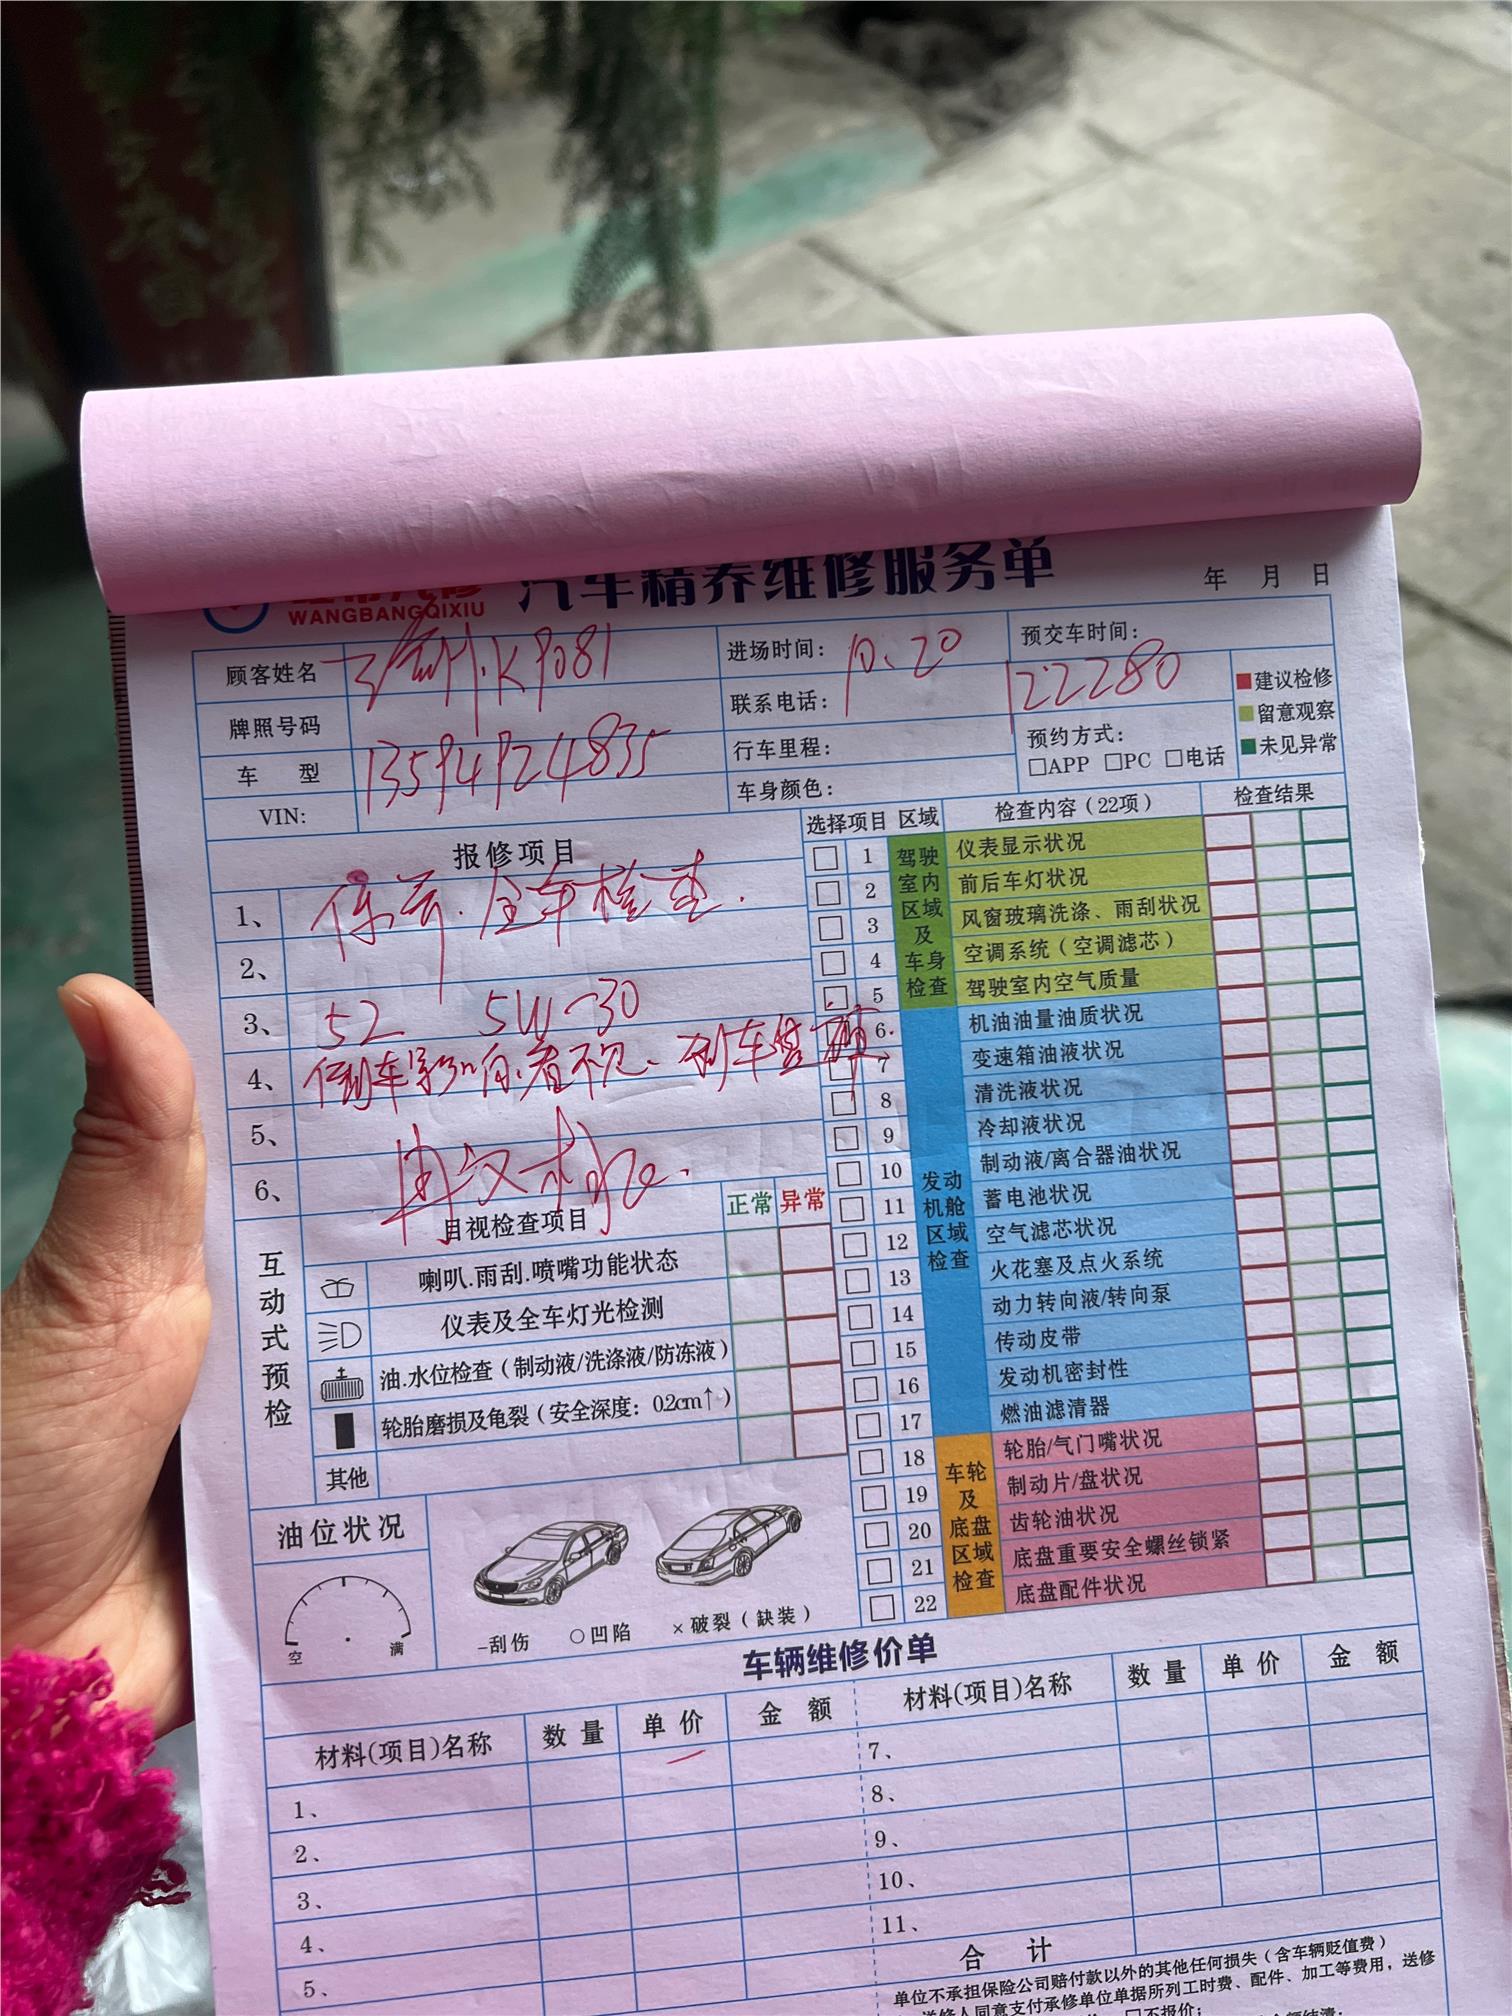 WANGBANGQIXIU 汽车精养维修服务单
年 月 日
顾客姓名 K9081 进场时间: 10:20 预交车时间:
牌照号码 联系电话: 122280
车 型 13594924835 行车里程: 预约方式:
□APP □PC □电话
VIN: 车身颜色:
建议检修
留意观察
未见异常
报修项目
1、 保养. 全车检查.
2、
3、 5L 5W-30
4、 倒车影响.看不见. 刹车
5、
6、
选择项目 区域 检查内容(22项) 检查结果
驾驶室内区域及车身检查
1 仪表显示状况
2 前后车灯状况
3 风窗玻璃洗涤、雨刮状况
4 空调系统(空调滤芯)
5 驾驶室内空气质量
发动机舱区域检查
6 机油油量油质状况
7 变速箱油液状况
8 清洗液状况
9 冷却液状况
10 制动液/离合器油状况
11 蓄电池状况
12 空气滤芯状况
13 火花塞及点火系统
14 动力转向液/转向泵
15 传动皮带
16 发动机密封性
17 燃油滤清器
车轮及底盘区域检查
18 轮胎/气门嘴状况
19 制动片/盘状况
20 齿轮油状况
21 底盘重要安全螺丝锁紧
22 底盘配件状况
互动式预检
目视检查项目 正常 异常
喇叭.雨刮.喷嘴功能状态
仪表及全车灯光检测
油.水位检查(制动液/洗涤液/防冻液)
轮胎磨损及龟裂(安全深度：0.2cm↑)
其他
油位状况
空 满
-刮伤 ○凹陷 ×破裂(缺装)
车辆维修价单
材料(项目)名称 数量 单价 金额 材料(项目)名称 数量 单价 金额
1、 7、
2、 8、
3、 9、
4、 10、
5、 11、
合 计
单位不承担保险公司赔付款以外的其他任何损失(含车辆贬值费)
送修人同意支付承修单位单据所列工时费、配件、加工等费用，送修
□不报价;